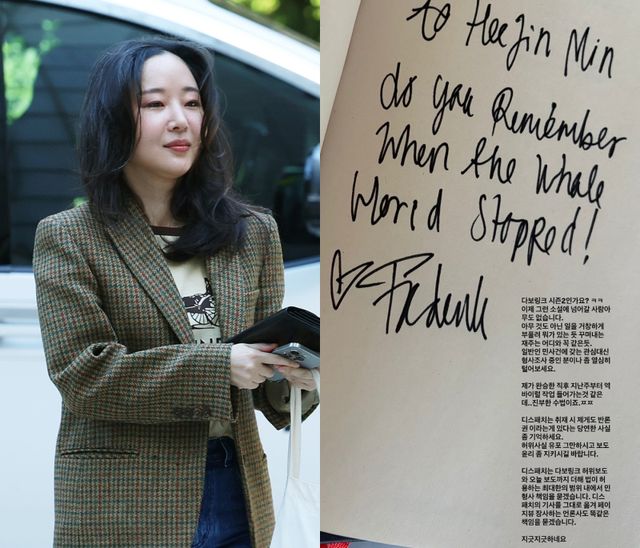 to HeeJin Min
do you Remember
When the Whole
World Stopped!
다보링크 시즌2인가요? ㅋㅋ
이제 그런 소설에 넘어갈 사람아
무도 없습니다.
아무 것도 아닌 일을 거창하게
부풀려 뭐가 있는 듯 꾸며내는
재주는 어디와 꼭 같은듯.
일반인 민사건에 갖는 관심대신
형사조사 중인 분이나 좀 열심히
털어보세요.
제가 완승한 직후 지난주부터 역
바이럴 작업 들어가는것 같은
데..진부한 수법이죠.ㅉㅉ
디스패치는 취재 시 제게도 반론
권 이라는게 있다는 당연한 사실
좀 기억하세요.
허위사실 유포 그만하시고 보도
윤리 좀 지키시길 바랍니다.
디스패치는 다보링크 허위보도
와 오늘 보도까지 더해 법이 허
용하는 최대한의 범위 내에서 민
형사 책임을 묻겠습니다. 디스
패치의 기사를 그대로 옮겨 페이
지뷰 장사하는 언론사도 똑같은
책임을 묻겠습니다.
지긋지긋하네요